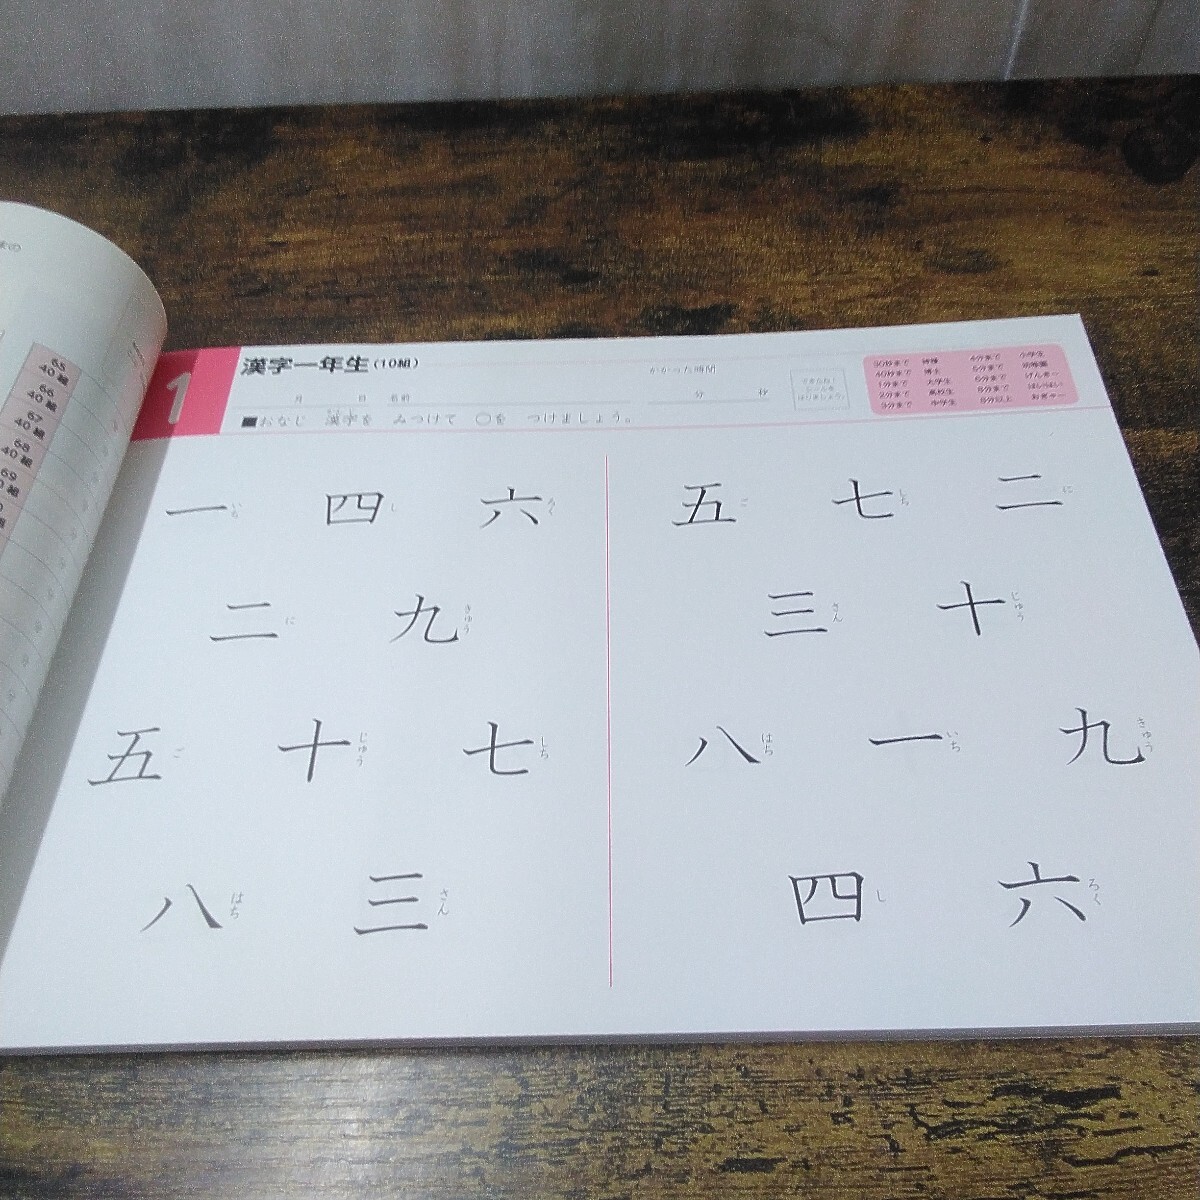 65
40組
66
40組
67
40組
68
40組
69
1
漢字一年生(10組)
月 日 名前
かかった時間
分 秒
できたね!
シールを
はりましょう!
30秒まで 神様 4分まで 小学生
40秒まで 博士 5分まで 幼稚園
1分まで 大学生 6分まで
2分まで 高校生 8分まで はいはい
3分まで 中学生 8分以上 おぎゃー
■おなじ 漢字を みつけて ○を つけましょう。
一 いち 四 し 六 ろく
二 に 九 きゅう
五 ご 十 じゅう 七 しち
八 はち 三 さん
五 ご 七 しち 二 に
三 さん 十 じゅう
八 はち 一 いち 九 きゅう
四 し 六 ろく